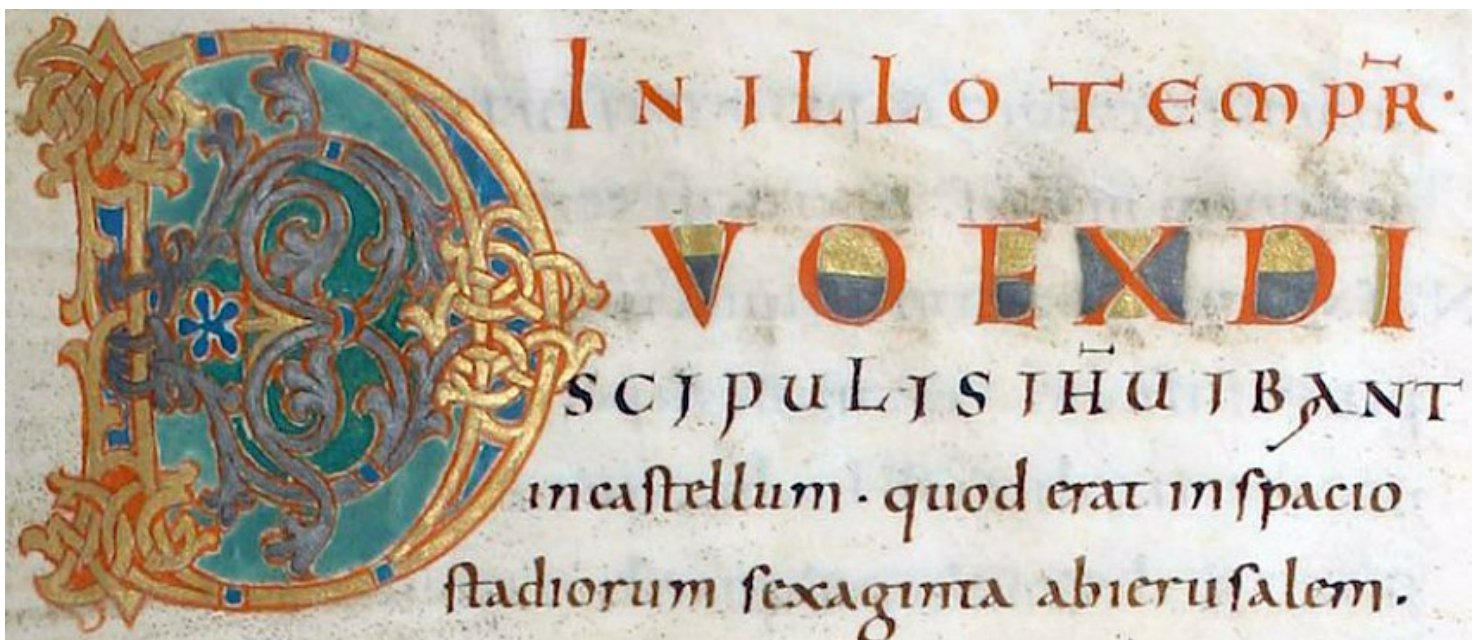 IN ILLO TEMPR̄·
DVO EX DI
SCIPULIS IH̄U IBANT
incaſtellum · quod erat inſpacio
ſtadiorum ſexaginta abieruſalem ·